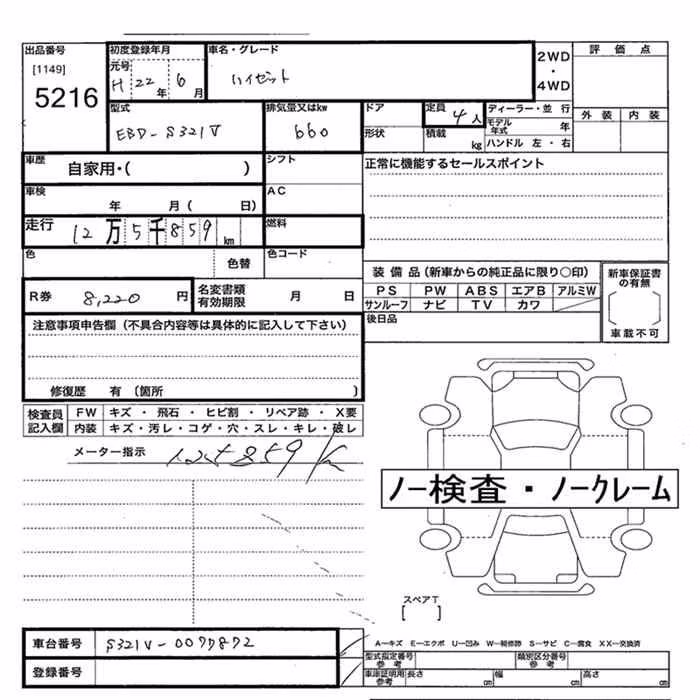 出品番号
[1149]
5216
初度登録年月
元号
H 22年 6月
車名・グレード
ハイゼット
2WD
・
4WD
評価点
外装 内装
型式
EBD-S321V
排気量又はkw
660
ドア
形状
定員 4人
積載 kg
ディーラー・並行
モデル年式 年
ハンドル 左・右
車歴
自家用・( )
シフト
正常に機能するセールスポイント
車検
年 月( 日)
AC
走行
12万5千859km
燃料
色
色替
色コード
R券 8,220円
名変書類有効期限 月 日
装備品(新車からの純正品に限り○印)
PS PW ABS エアB アルミW
サンルーフ ナビ TV カワ
新車保証書の有無
〔 〕
車載不可
後日品
注意事項申告欄(不具合内容等は具体的に記入して下さい)
修復歴 有〔箇所 〕
検査員記入欄
FW キズ・飛石・ヒビ割・リペア跡・X要
内装 キズ・汚レ・コゲ・穴・スレ・キレ・破レ
メーター指示 125859km
ノー検査・ノークレーム
スペアT
[ ]
A―キズ E―エクボ U―凹み W―補修跡 S―サビ C―腐食 XX―交換済
車台番号 S321V-0077872
登録番号
型式指定番号 参考
類別区分番号 参考
車庫証明用 参考
長さ cm 幅 cm 高さ cm